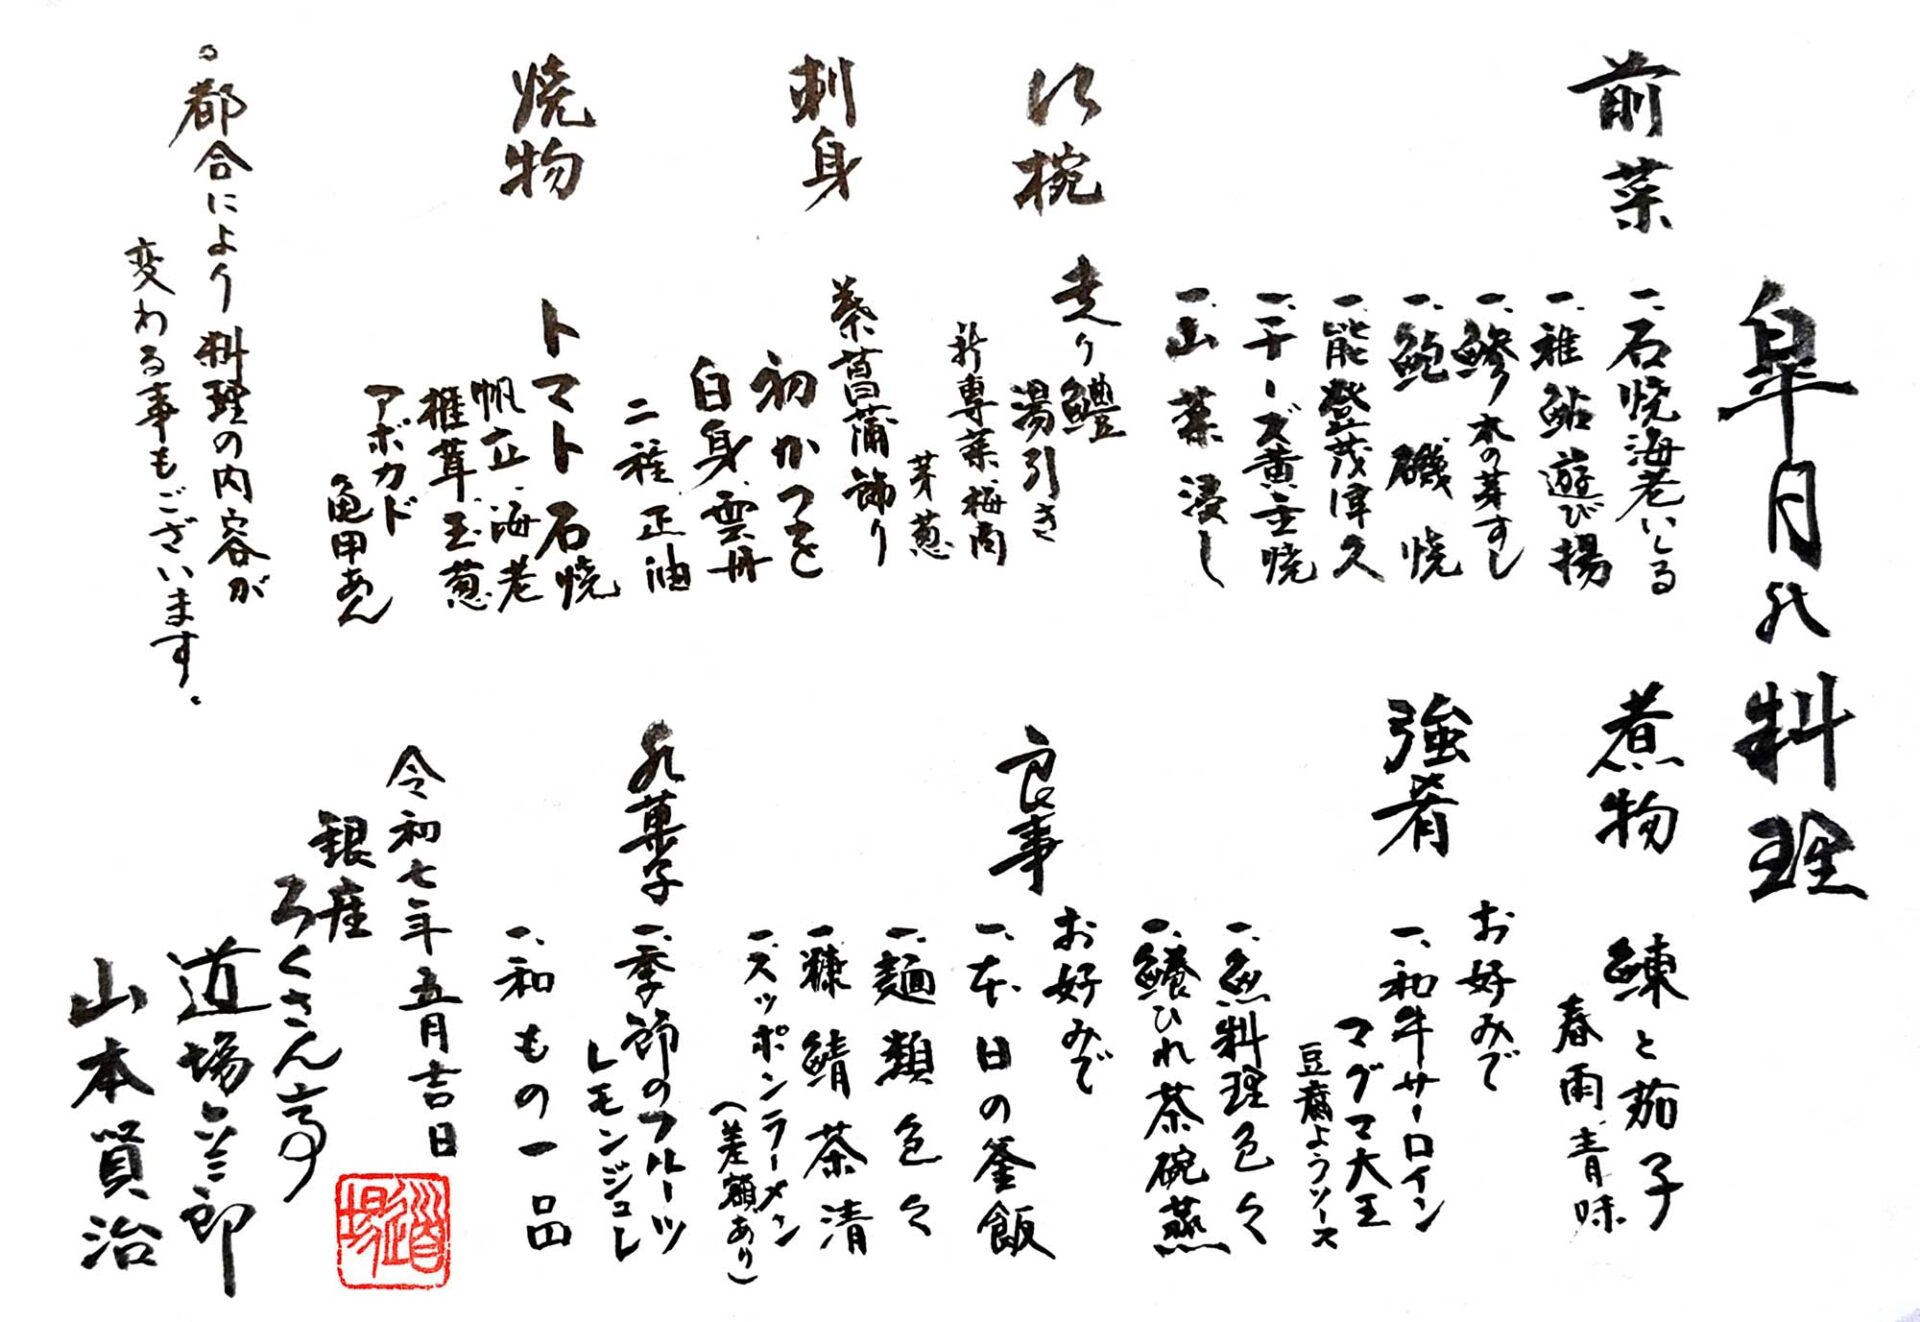 皐月の料理
前菜
一、石焼海老いしる
一、稚鮎遊び揚
一、鯵木の芽すし
一、鮑磯焼
一、能登茂津久
一、チーズ黄金焼
一、山菜浸し
江椀
走り鱧
湯引き
新蓴菜、梅肉
芽葱
刺身
茶菖蒲飾り
初かつを
白身、雲丹
二種正油
焼物
トマト石焼
帆立、海老
椎茸、玉葱
アボカド
亀甲あん
。都合により料理の内容が
変わる事もございます。
煮物
鰊と茄子
春雨、青味
強肴
お好みで
一、和牛サーロイン
マグマ大王
豆腐ようソース
一、魚料理色々
一、鱶ひれ茶碗蒸
良事
お好みで
一、本日の釜飯
一、麺類色々
一、糠鯖茶漬
一、スッポンラーメン
(差額あり)
水菓子
一、季節のフルーツ
レモンジュレ
一、和もの一品
令和七年五月吉日
銀座
ろくさん亭
道場六三郎
山本賢治
道場